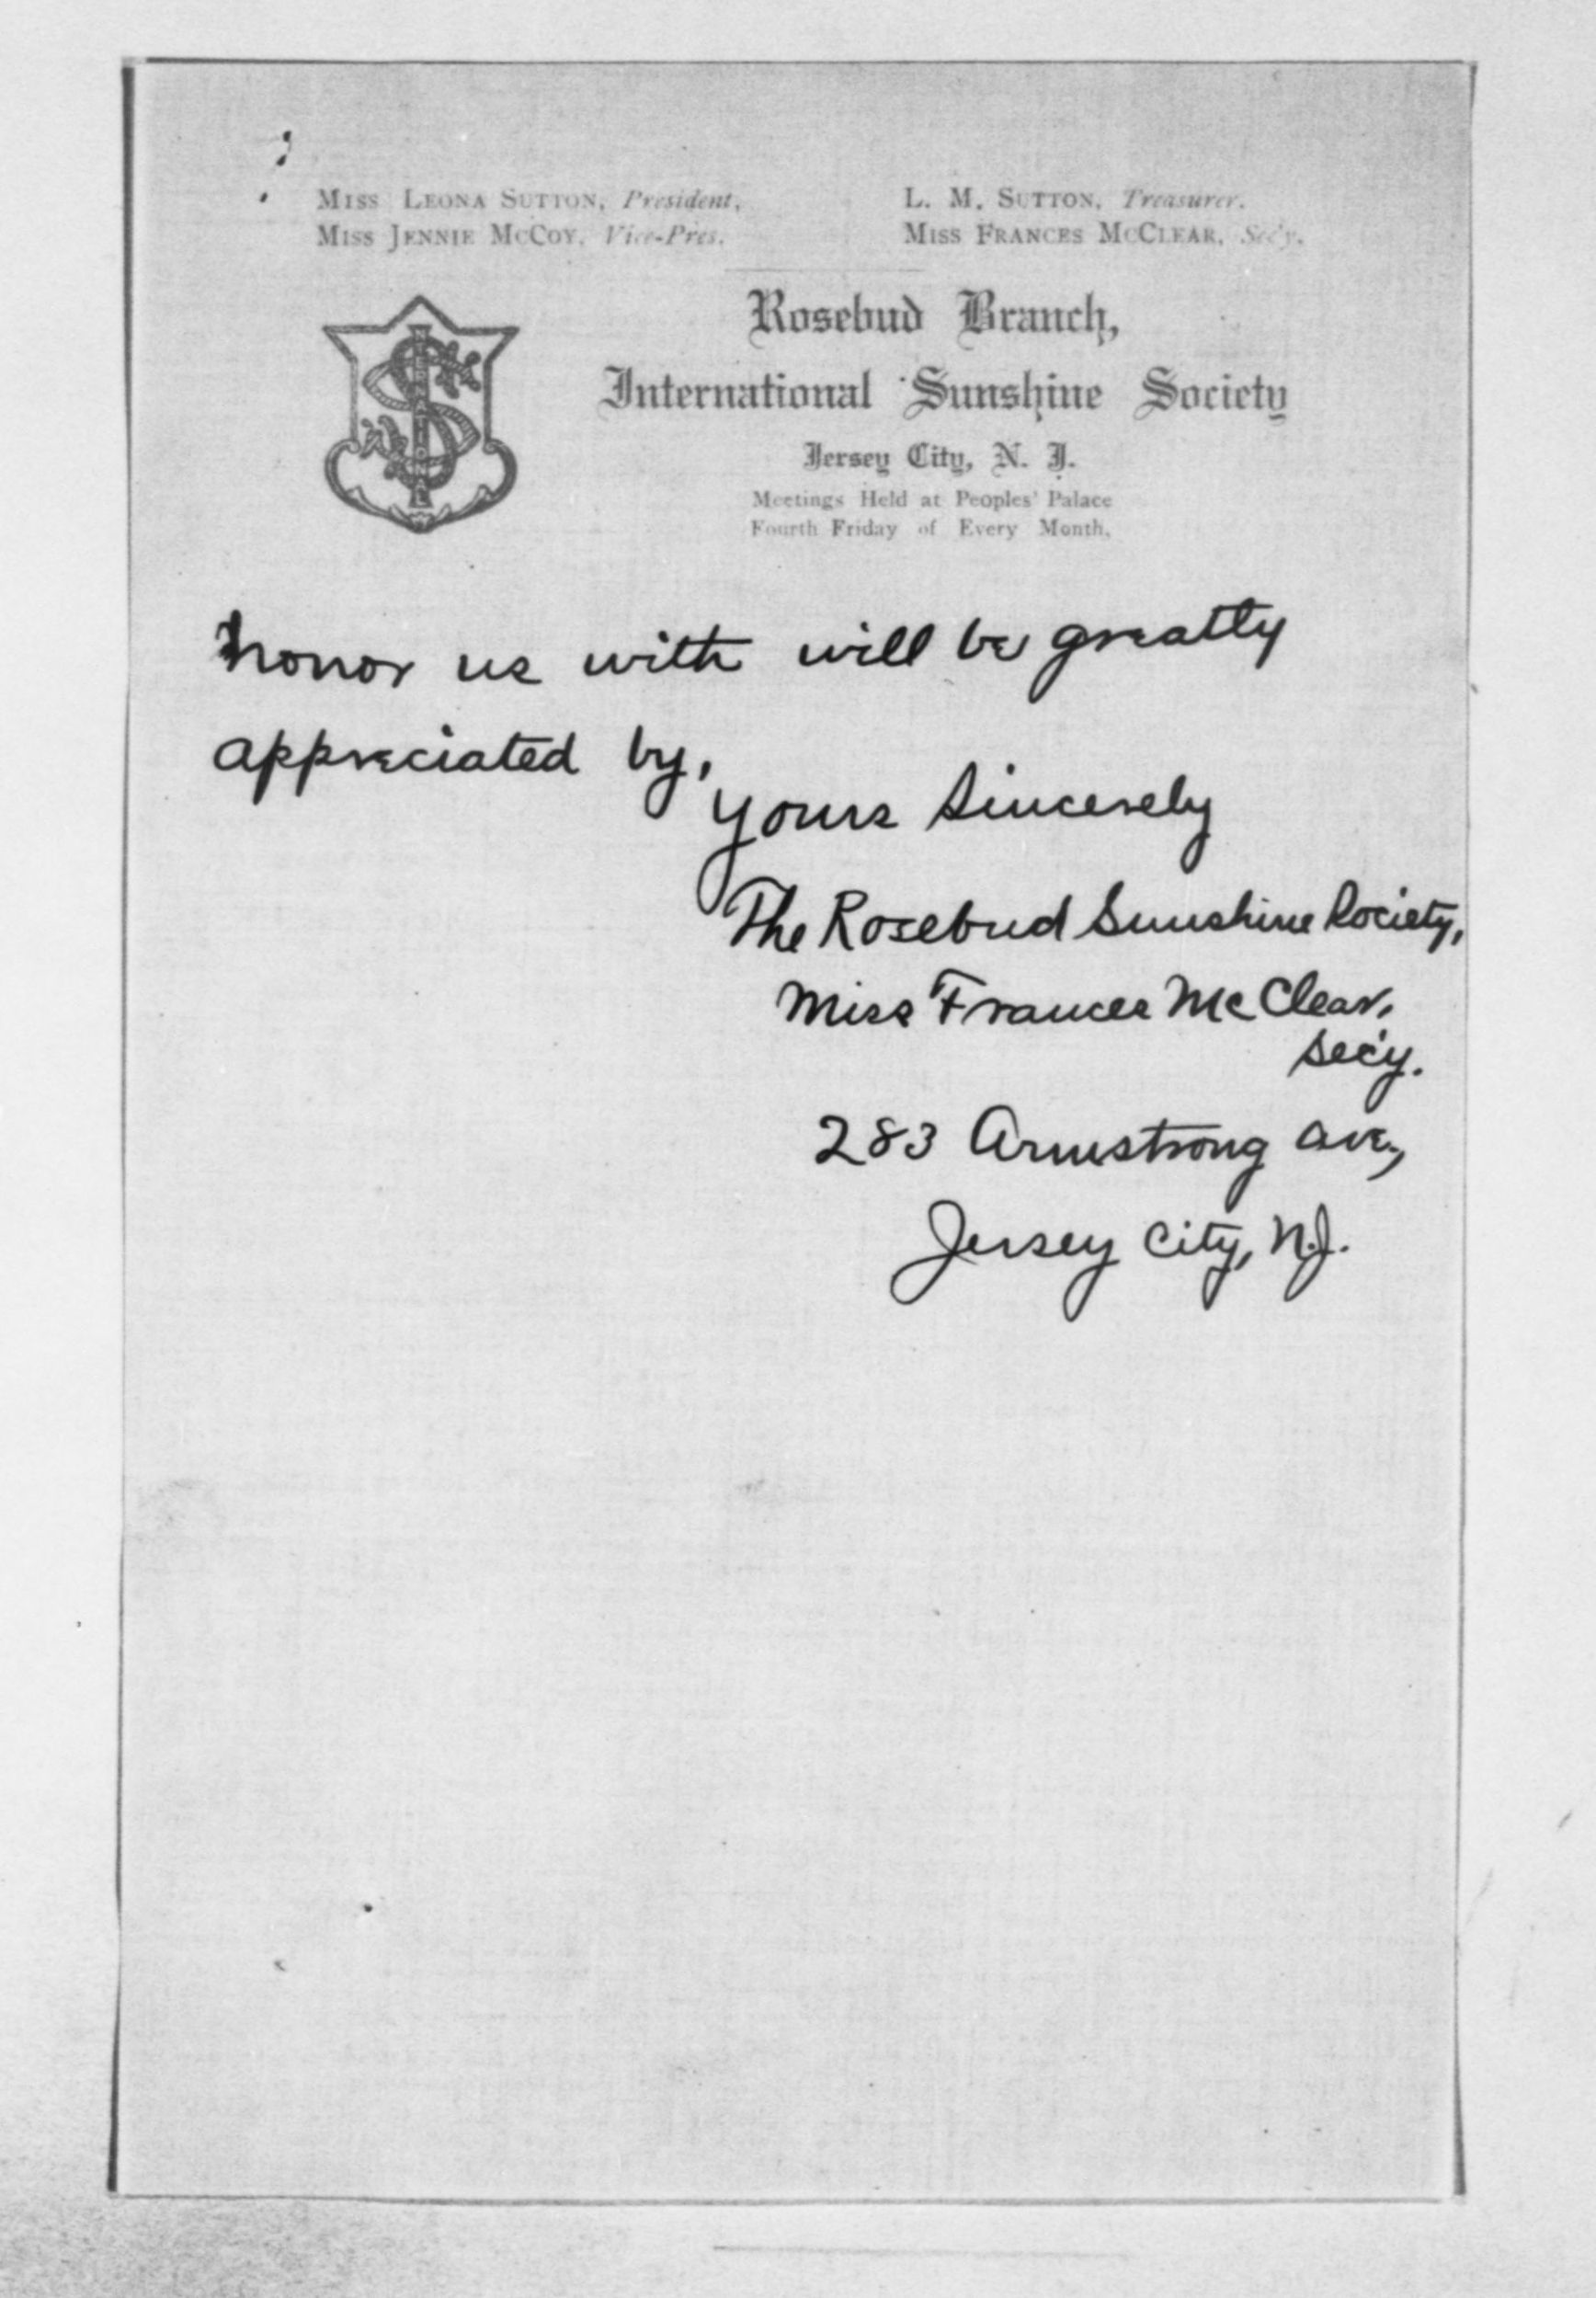 MISS LEONA SUTTON, President,
MISS JENNIE MCCOY, Vice-Pres.
L. M. SUTTON, Treasurer.
MISS FRANCES MCCLEAR, Sec'y.
Rosebud Branch,
International Sunshine Society
Jersey City, N. J.
Meetings Held at Peoples' Palace
Fourth Friday of Every Month.
honor us with will be greatly
appreciated by,
Yours Sincerely
The Rosebud Sunshine Society,
Miss Frances McClear,
Sec'y.
283 Armstrong Ave.,
Jersey City, N.J.